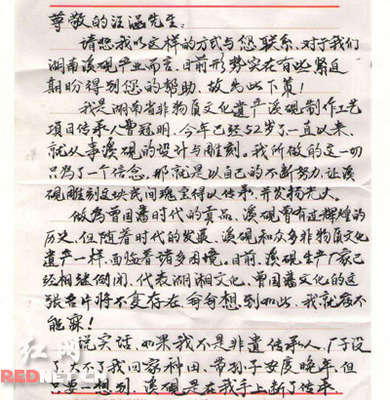 尊敬的汪涵先生：
请恕我以这样的方式与您联系，对于我们
湖南溪砚产业而言，目前形势实在有些紧迫
期盼得到您的帮助，故出此下策！
我是湖南省非物质文化遗产溪砚制作工艺
项目传承人曹冠明，今年已经52岁了一直以来，
就从事溪砚的设计与雕刻。我所做的这一切
只为了一个信念，那就是以自己的不断努力，让溪
砚雕刻这块民间瑰宝得以传承，并发扬光大。
做为曾国藩时代的贡品，溪砚曾有过辉煌的
历史，但随着时代的发展，溪砚和众多非物质文化
遗产一样，面临着诸多困境。目前，溪砚生产厂家已
经相继倒闭，代表湖湘文化，曾国藩文化的这
张名片将不复存在 每每想到如此，我就夜不
能寐！
说实话，如果我不是非遗传承人，厂子没
了大不了我回家种田，带孙子安度晚年，但
只要一想到，溪砚是在我手上断了传承
红网
REDNET